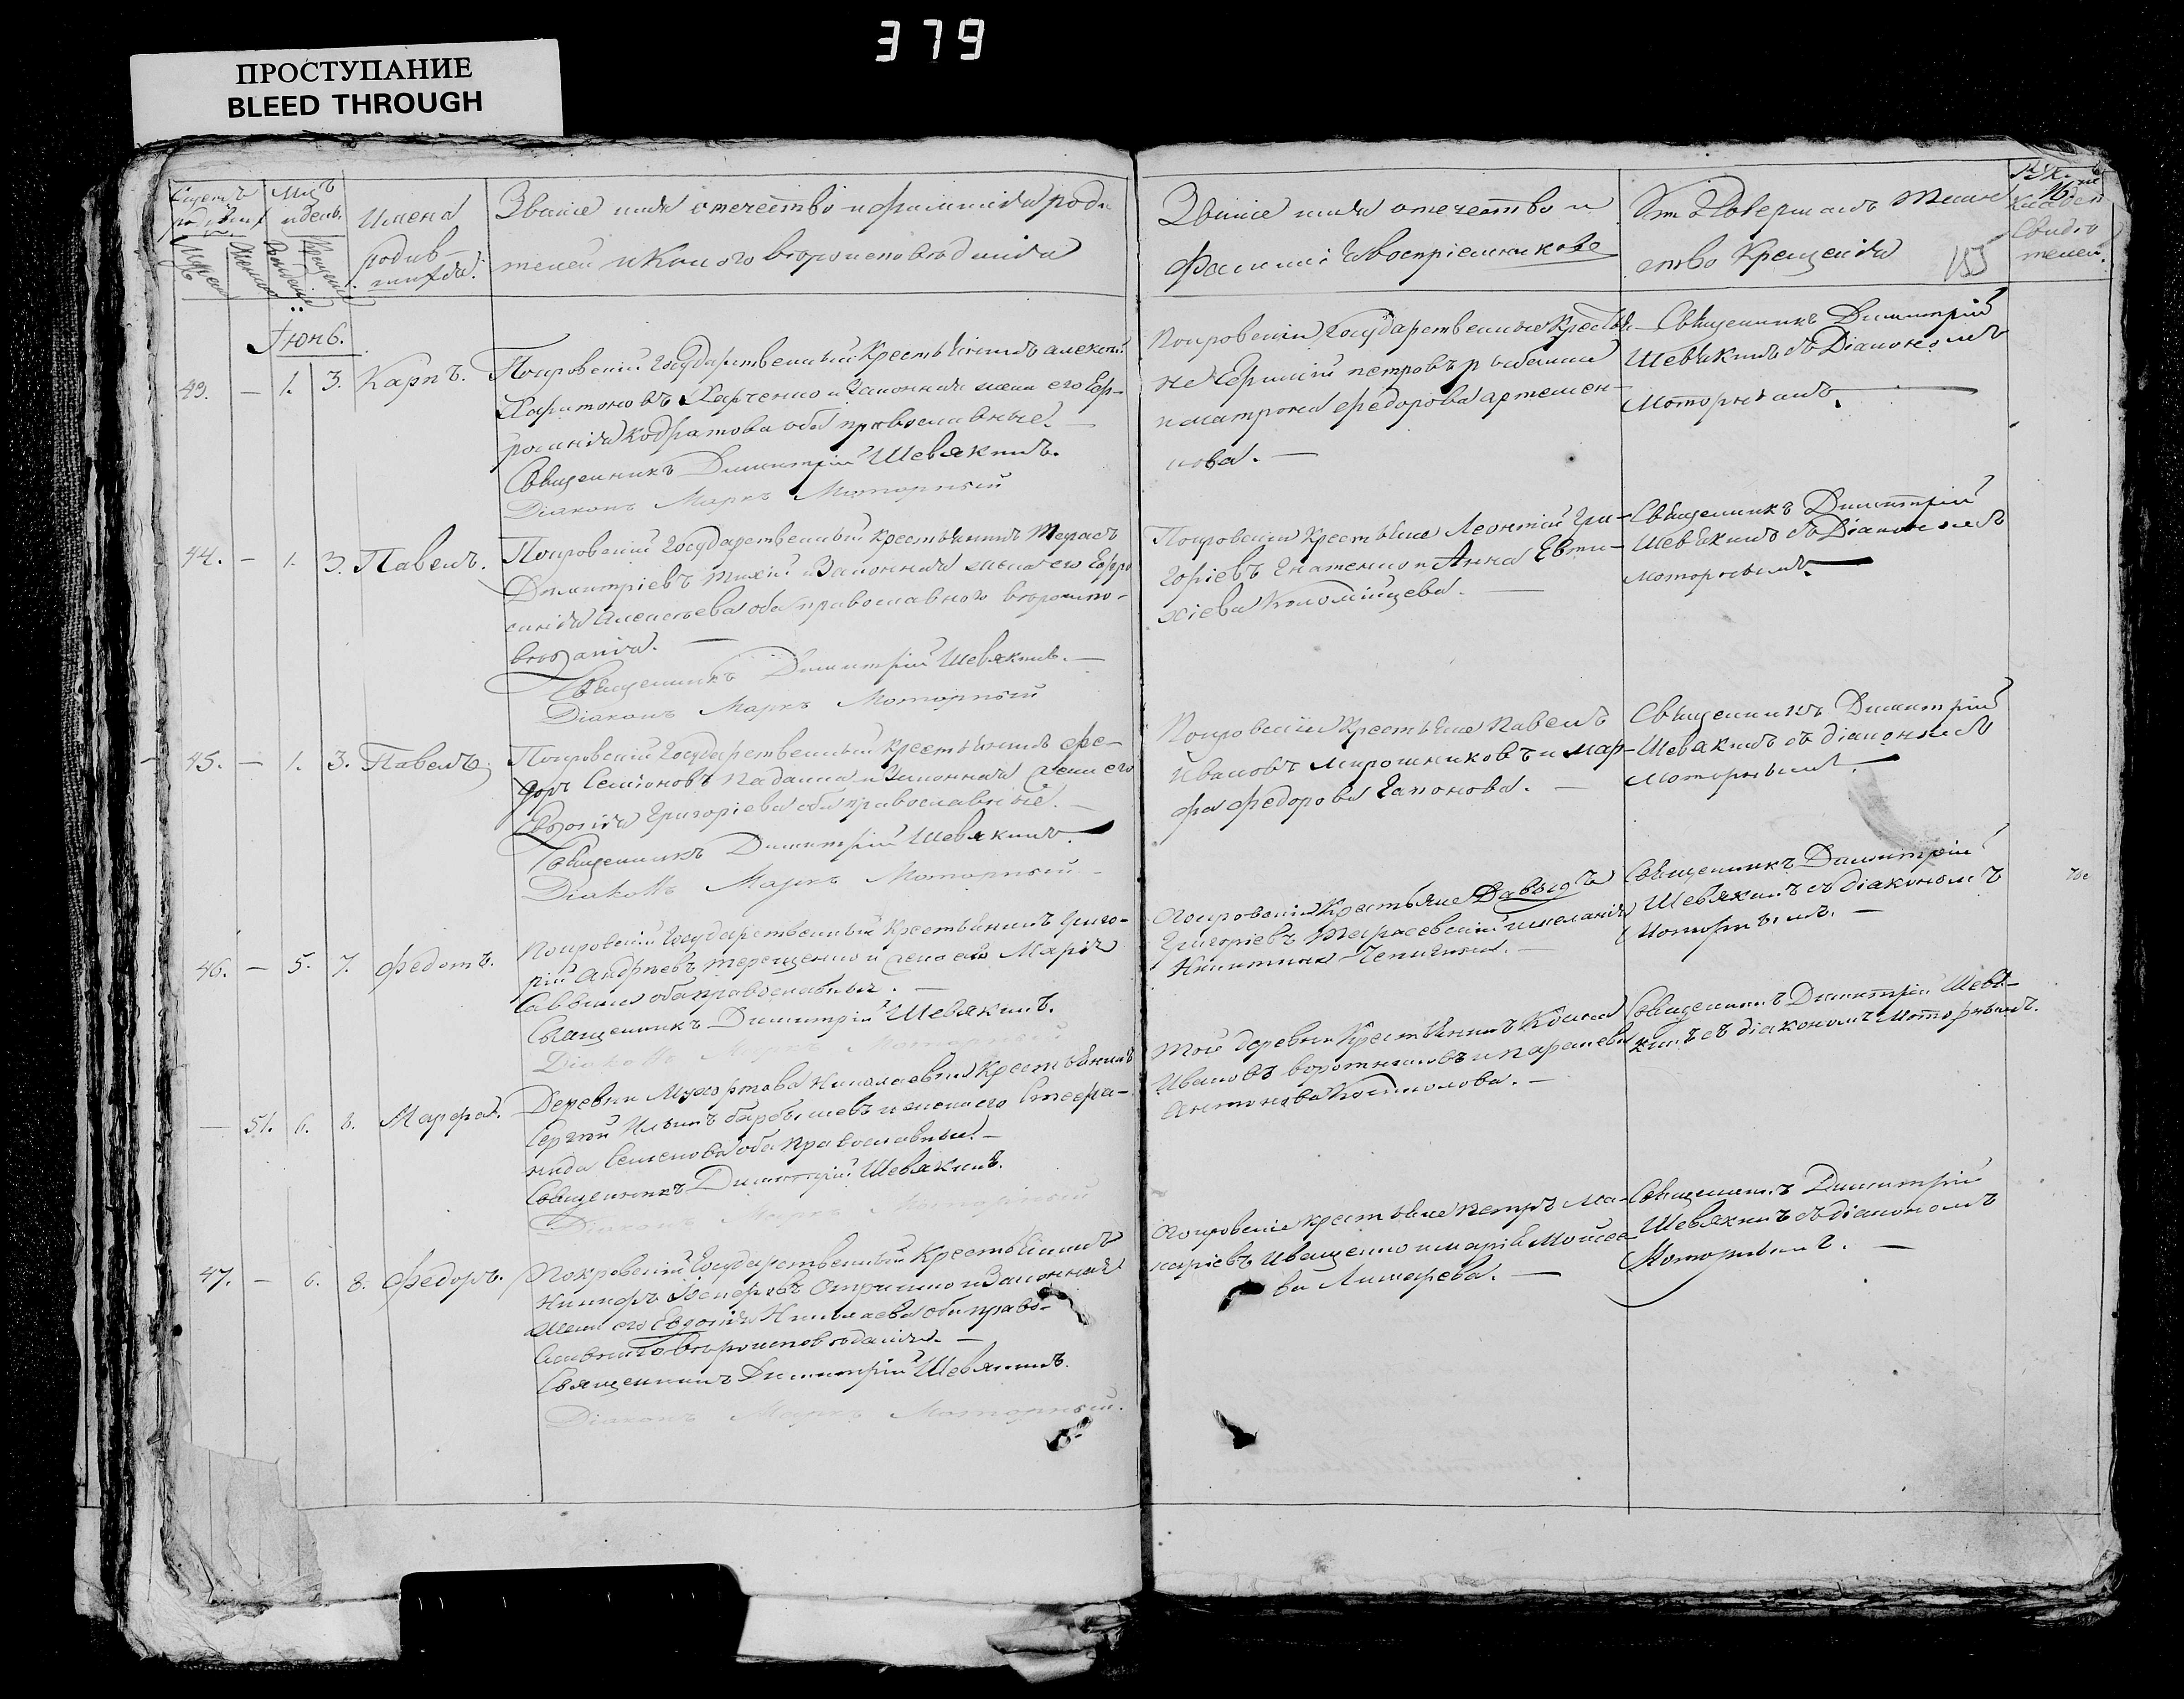 379
ПРОСТУПАНИЕ
BLEED THROUGH
Счетъ
Мцъ
и день.
Имена
родив
шихся.
Званіе имя отечество и фамилія роди
телей и какого вѣроисповѣданія
Званіе имя отечество и
Фамилія воспріемниковъ
Кто совершалъ Таин
ство Крещенія
155
Свидѣ
телей.
Іюнь.
43. — 1. 3. Карпъ.
Покровскій Государственный Крестьянинъ Алексѣй
Харитоновъ Харченко и Законная жена его Евф-
росинія Кодратова оба православные. —
Священникъ Димитрій Шевякинъ.
Діаконъ Маркъ Моторный
Покровскіе Государственные Крестья-
не Ермилій Петровъ
и Матрона Федорова Артемен-
кова. —
Священникъ Димитрій
Шевякинъ съ Діакономъ
Моторнымъ.
44. — 1. 3. Павелъ.
Покровскій Государственный Крестьянинъ Тарасъ
Димитріевъ Тихій и Законная жена его Евфро
синія оба православнаго вѣроиспо-
вѣданія. —
Священникъ Димитрій Шевякинъ. —
Діаконъ Маркъ Моторный
Покровскіе Крестьяне Леонтій Гри-
горіевъ Гнатенко и Анна Евти-
хіева Коломійцева. —
Священникъ Димитрій
Шевякинъ съ Діакономъ
Моторнымъ.
45. — 1. 3. Павелъ
Покровскій Государственный Крестьянинъ Фе-
доръ Семіоновъ Падалка и Законная жена его
Евдокія Григоріева оба православные. —
Священникъ Димитрій Шевякинъ.
Діаконъ Маркъ Моторный —
Покровскіе Крестьяне Павелъ
Ивановъ Мирошниковъ и Мар-
фа Федорова Гапонова. —
Священникъ Димитрій
Шевякинъ съ діакономъ
Моторнымъ.
46. — 5. 7. Федотъ.
Покровскій Государственный Крестьянинъ Григо-
рій Андреевъ Терещенко и жена его Марія
Саввина оба православные. —
Священникъ Димитрій Шевякинъ.
Діаконъ Маркъ Моторный
Покровскіе Крестьяне Давыдъ
Григоріевъ Тарасевскій и Меланія
Никитина —
Священникъ Димитрій
Шевякинъ съ діакономъ
Моторнымъ. —
— 51. 6. 8. Марфа.
Деревни Мухортова Николаевки Крестьянинъ
Сергѣй Ильинъ и жена его Стефа-
нида Семенова оба православные. —
Священникъ Димитрій Шевякинъ.
Діаконъ Маркъ Моторный
Той деревни Крестьянинъ
Ивановъ и Параскева
Антонова —
Священникъ Димитрій Шевя-
кинъ съ діакономъ Моторнымъ.
47. — 6. 8. Федоръ.
Покровскій Государственный Крестьянинъ
Никифоръ Іосифовъ и Законная
жена его Евдокія Николаева оба право-
славнаго вѣроисповѣданія. —
Священникъ Димитрій Шевякинъ.
Діаконъ Маркъ Моторный.
Покровскіе крестьяне Петръ Ма-
каріевъ Иващенко и Марія Моисее
ва Лимарева. —
Священникъ Димитрій
Шевякинъ съ діакономъ
Моторнымъ. —